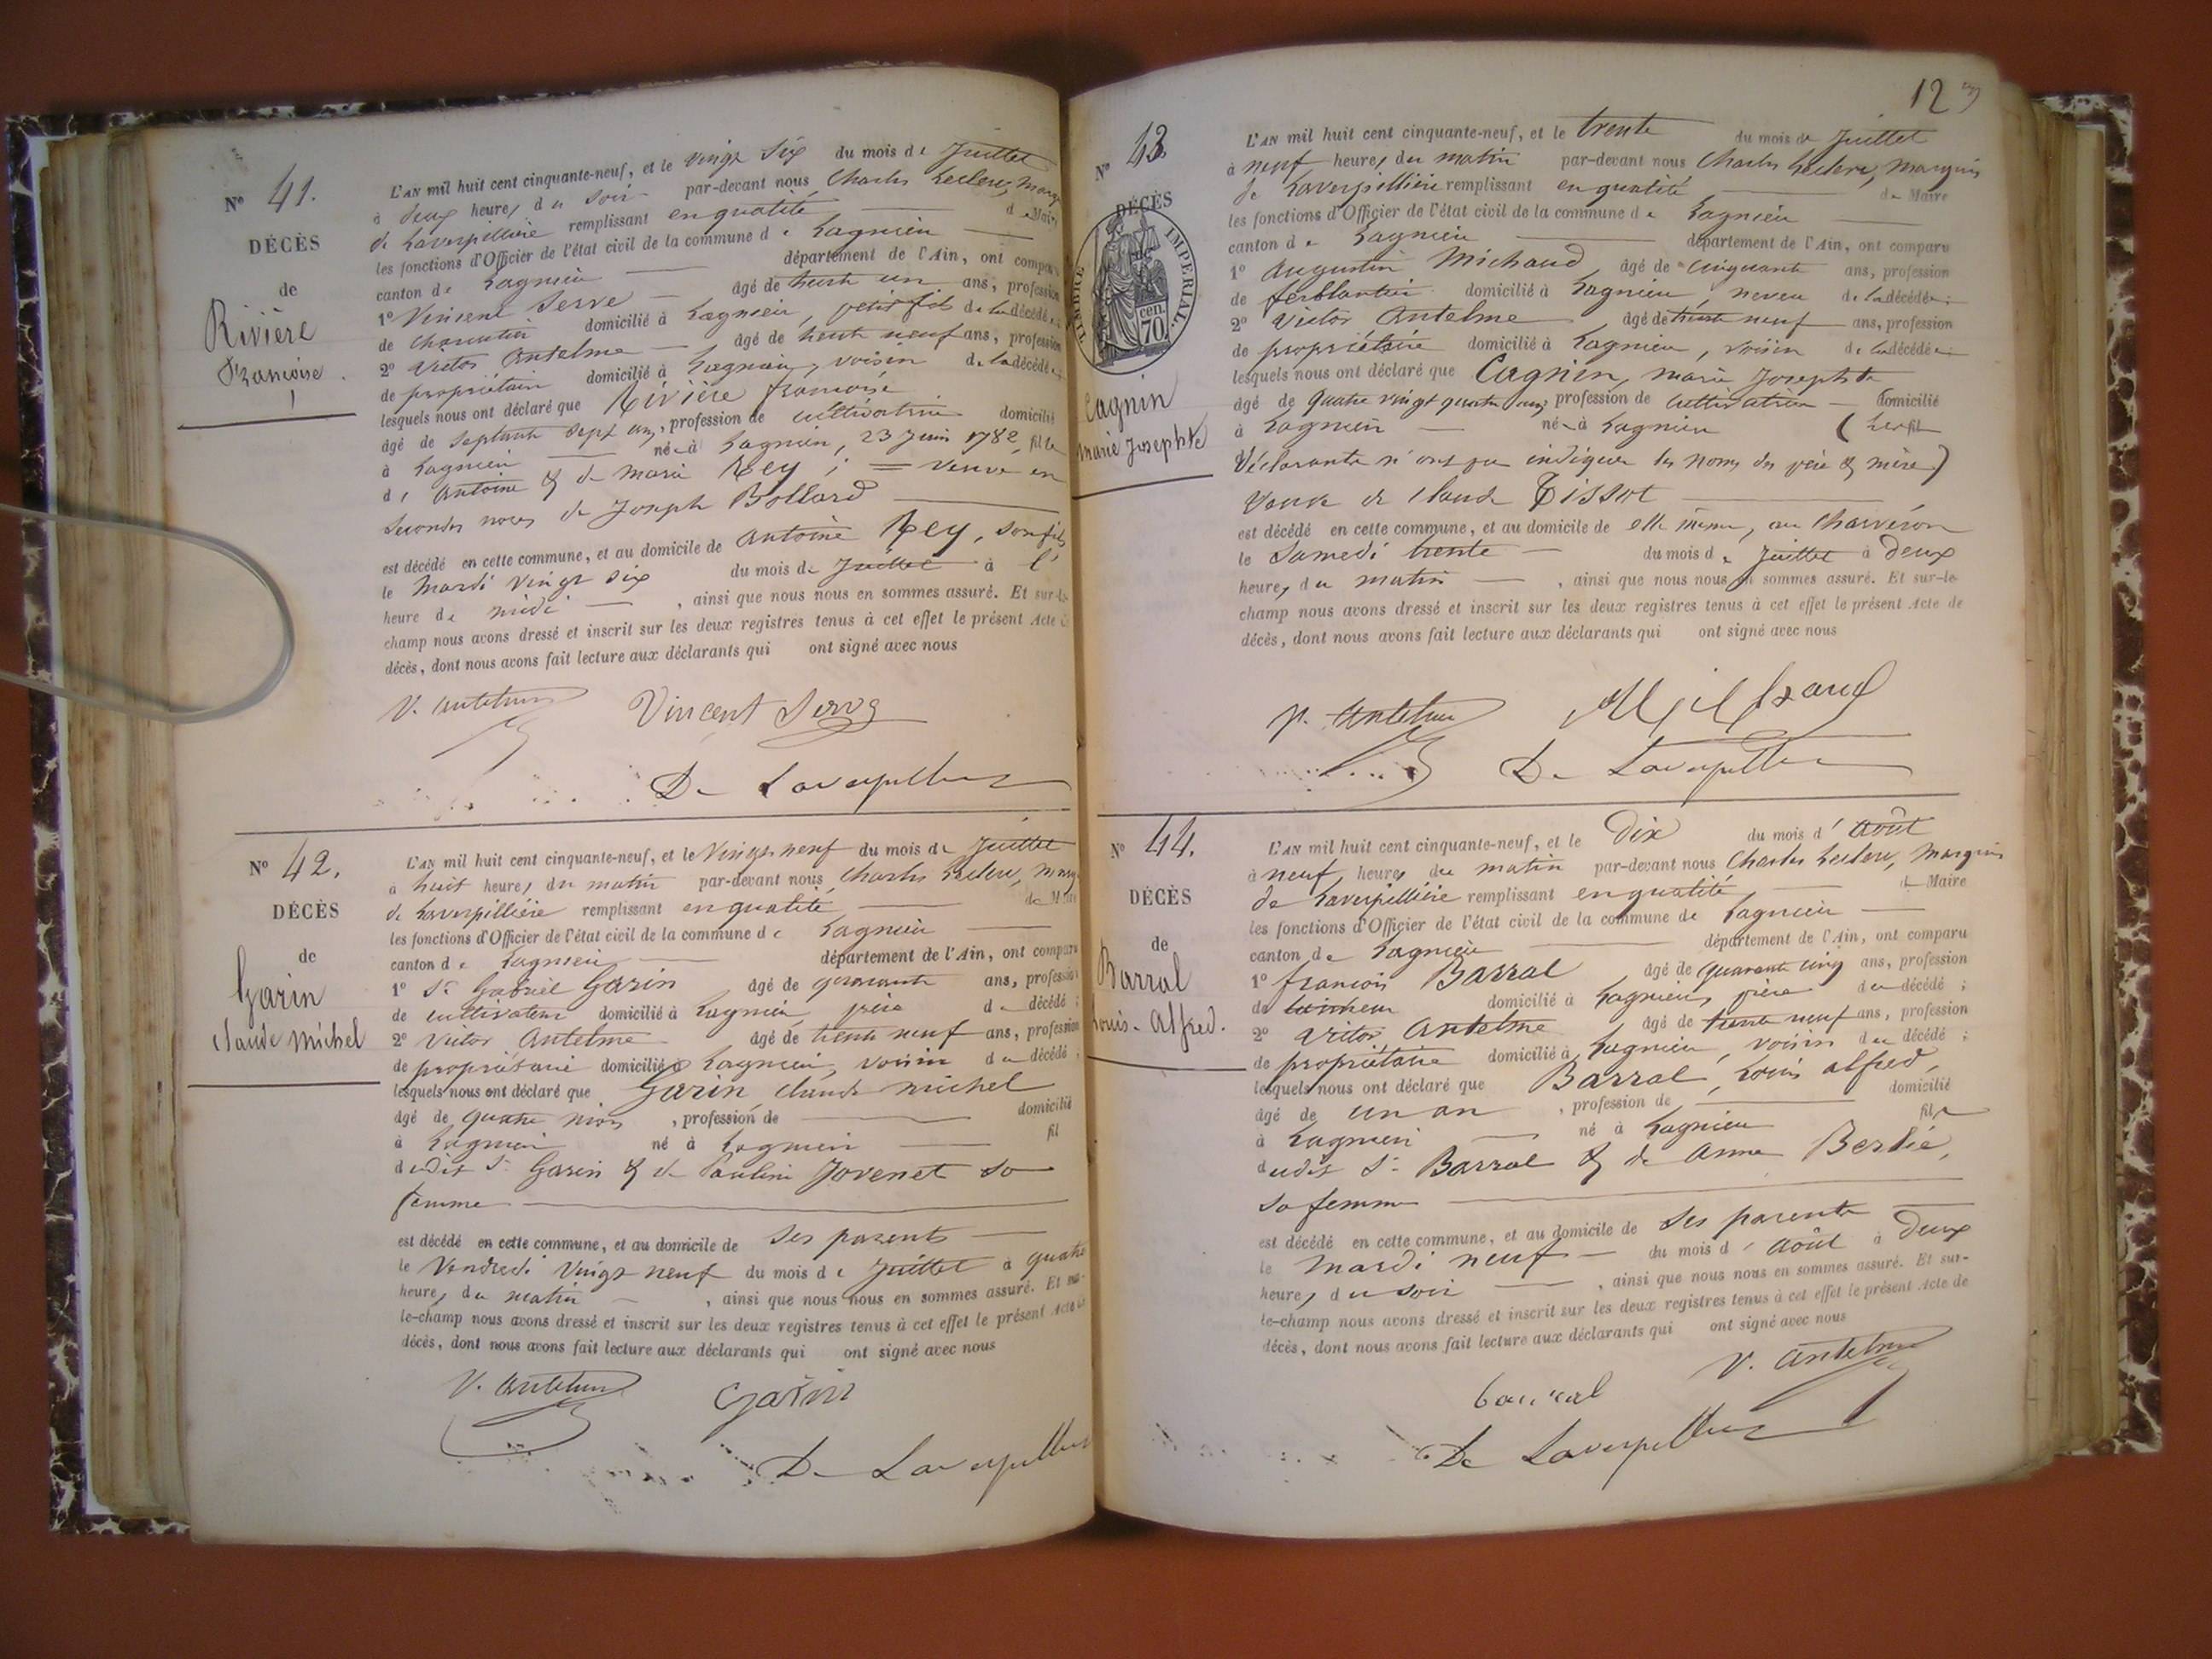 N° 41.
DÉCÈS
de
Rivière
Françoise.
L'AN mil huit cent cinquante-neuf, et le vingt six du mois de Juillet
à deux heures du soir par-devant nous Charles Leclerc, Marq
de Laverpillière remplissant en qualité de Maire
les fonctions d'Officier de l'état civil de la commune de Lagnieu
canton de Lagnieu département de l'Ain, ont comparu
1° Vincent Serve âgé de trente un ans, profession
de charretier domicilié à Lagnieu, petit fils de la décédée;
2° Victor Antelme âgé de trente neuf ans, profession
de propriétaire domicilié à Lagnieu, voisin de la décédée
lesquels nous ont déclaré que Rivière françoise
âgé de septante sept ans, profession de cultivatrice domicilié
à Lagnieu née à Lagnieu, 23 Juin 1782, fille
d'Antoine & de Marie Rey; = veuve en
secondes noces de Joseph Bollard
est décédé en cette commune, et au domicile de Antoine Rey, son fils
le Mardi vingt six du mois de Juillet à l'
heure de midi, ainsi que nous nous en sommes assuré. Et sur-le-
champ nous avons dressé et inscrit sur les deux registres tenus à cet effet le présent Acte de
décès, dont nous avons fait lecture aux déclarants qui ont signé avec nous
V. Antelme Vincent Serve
De Laverpilliere
N° 42.
DÉCÈS
de
Garin
Claude Michel
L'AN mil huit cent cinquante-neuf, et le vingt neuf du mois de Juillet
à huit heures du matin par-devant nous Charles Leclerc, Marq
de Laverpillière remplissant en qualité de Maire
les fonctions d'Officier de l'état civil de la commune de Lagnieu
canton de Lagnieu département de l'Ain, ont comparu
1° Sr Gabriel Garin âgé de quarante ans, profession
de cultivateur domicilié à Lagnieu, père d décédé;
2° Victor Antelme âgé de trente neuf ans, profession
de propriétaire domicilié à Lagnieu, voisin du décédé;
lesquels nous ont déclaré que Garin Claude Michel
âgé de quatre mois, profession de domicilié
à Lagnieu né à Lagnieu fil
dudit Sr Garin & de Pauline Jovenet sa
femme
est décédé en cette commune, et au domicile de ses parents
le Vendredi vingt neuf du mois de Juillet à quatre
heures du matin, ainsi que nous nous en sommes assuré. Et sur-
le-champ nous avons dressé et inscrit sur les deux registres tenus à cet effet le présent Acte de
décès, dont nous avons fait lecture aux déclarants qui ont signé avec nous
V. Antelme Garin
De Laverpilliere
123
N° 43.
DÉCÈS
TIMBRE IMPERIAL.
70 cen.
Cagnin
Marie Josephte
L'AN mil huit cent cinquante-neuf, et le trente du mois de Juillet
à neuf heures du matin par-devant nous Charles Leclerc, Marquis
de Laverpillière remplissant en qualité de Maire
les fonctions d'Officier de l'état civil de la commune de Lagnieu
canton de Lagnieu département de l'Ain, ont comparu
1° Augustin Michaud, âgé de cinquante ans, profession
de ferblantier domicilié à Lagnieu, neveu de la décédée;
2° Victor Antelme, âgé de trente neuf ans, profession
de propriétaire domicilié à Lagnieu, voisin de la décédée
lesquels nous ont déclaré que Cagnin, Marie Josephte
âgé de quatre vingt quatre ans, profession de cultivatrice domicilié
à Lagnieu née à Lagnieu (les fil
déclarants n'ont pu indiquer les noms des père & mère)
veuve de Claude Tissot
est décédé en cette commune, et au domicile de elle même, au Charvéron
le Samedi trente du mois de Juillet à deux
heures du matin, ainsi que nous nous en sommes assuré. Et sur-le-
champ nous avons dressé et inscrit sur les deux registres tenus à cet effet le présent Acte de
décès, dont nous avons fait lecture aux déclarants qui ont signé avec nous
V. Antelme Michaud
De Laverpilliere
N° 44.
DÉCÈS
de
Barral
Louis-Alfred.
L'AN mil huit cent cinquante-neuf, et le Dix du mois d'Août
à neuf heures du matin par-devant nous Charles Leclerc, Marquis
de Laverpillière remplissant en qualité de Maire
les fonctions d'Officier de l'état civil de la commune de Lagnieu
canton de Lagnieu département de l'Ain, ont comparu
1° françois Barral, âgé de quarante cinq ans, profession
de domicilié à Lagnieu, père du décédé;
2° Victor Antelme âgé de trente neuf ans, profession
de propriétaire domicilié à Lagnieu, voisin du décédé;
lesquels nous ont déclaré que Barral, Louis Alfred,
âgé de un an, profession de domicilié
à Lagnieu né à Lagnieu fils
dudit Sr Barral & de Anne Berlié,
sa femme
est décédé en cette commune, et au domicile de ses parents
le Mardi neuf du mois d'Août à deux
heures du soir, ainsi que nous nous en sommes assuré. Et sur-
le-champ nous avons dressé et inscrit sur les deux registres tenus à cet effet le présent Acte de
décès, dont nous avons fait lecture aux déclarants qui ont signé avec nous
barral V. Antelme
De Laverpilliere